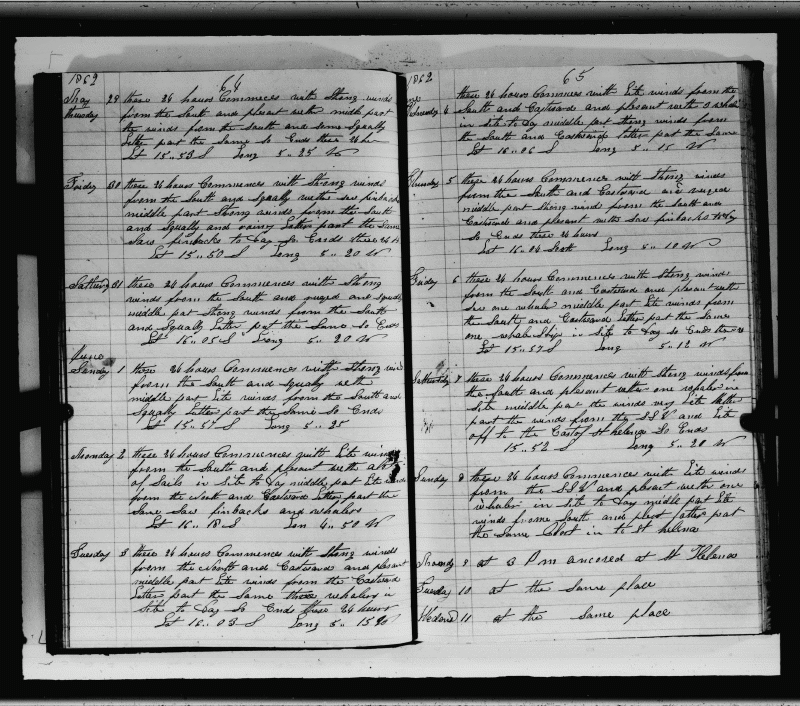 1862
64
May 29 these 24 hours Commences with Strong winds
Thursday from the South and plesant weth midd part
the winds from the South and some Squally
Letter part the Same So Ends these 24 hor
Lat 15..53 S Long 5..25 W
Friday 30 these 24 hours Commences with Strong winds
from the South and Squally weth saw finbacks
middle part Strong winds from the South
and Squally and rainy Letter part the Same
Saw finbacks to day So Ends these 24 h
Lat 15..50 S Long 5..20 W
Saturday 31 these 24 hours Commences with Strong
winds from the South and ruged and Squaly
middle part Strong winds from the South
and Squally Letter part the Same So Ends
Lat 16..05 S Long 5..20 W
June
Sunday 1 these 24 hours Commences with Strong wind
from the South and Squaly weth
middle part Lite winds from the South and
Squaly Letter part the Same So Ends
Lat 15..57 S Long 5..25
Monday 2 these 24 hours Commences with Lite winds
from the South and plesant weth
of Sails in Site to day middle part Lite winds
from the South and Eastward Letter part the
Same Saw finbacks and whalers
Lat 16..18 S Lon 4..50 W
Tuesday 3 these 24 hours Commences with Strong winds
from the South and Eastward and plesant
middle part Lite winds from the Eastward
Letter part the Same three whalers in
Site to day So Ends these 24 hours
Lat 16..03 S Long 5..15 W
1862
65
these 24 hours Commences with Lite winds from the
4 South and Eastward and plesant weth a whaler
in Site to day middle part Strong winds from
the South and Eastward Letter part the Same
Lat 16..06 S Long 5..15 W
Thursday 5 these 24 hours Commences with Strong winds
from the South and Eastward and ruged
middle part Strong winds from the South and
Eastward and plesant weth Saw finbacks to day
So Ends these 24 hours
Lat 16..04 South Long 5..10 W
Friday 6 these 24 hours Commences with Strong winds
from the South and Eastward and plesant weth
See one whale middle part Lite winds from
the South and Eastward Letter part the Same
one whale Ship in Site to day So Ends the 24
Lat 15..57 S Long 5..12 W
Satturday 7 these 24 hours Commences with Strong winds from
the South and plesant wether one whaler in
Site middle part the winds very Lite Letter
part the winds from the S S W and Lite
off to the East of St helena So Ends
15..52 S Long 5..20 W
Sunday 8 these 24 hours Commences with Lite winds
from the S S W and plesant weth one
whaler in Site to day middle part Lite
winds from South and plesant Latter part
the Same in to St helena
Monday 9 at 3 P m ancored at St Helena
Tuesday 10 at the Same place
Wedend 11 at the Same place